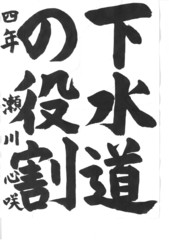 下水道
の役割
四年
瀬川心咲